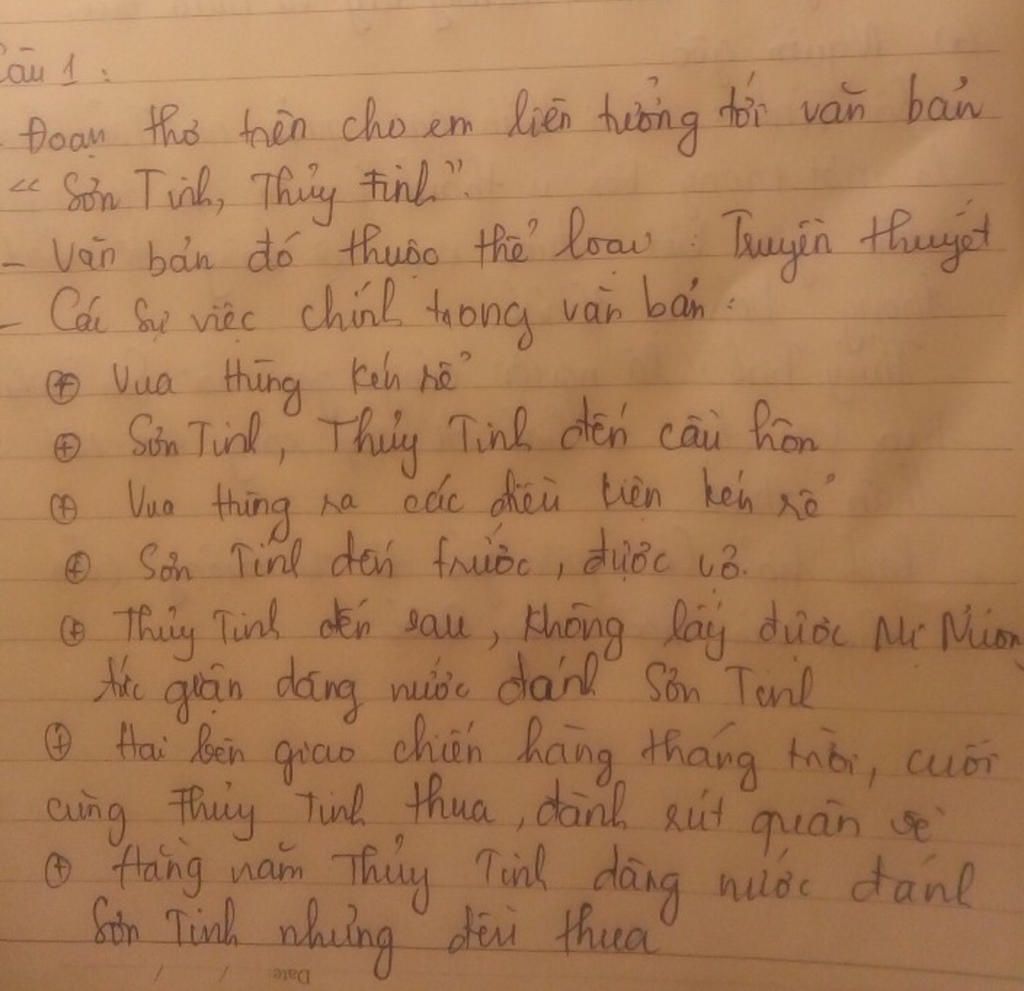 Câu 1 :
- Đoạn thơ trên cho em liên tưởng tới văn bản
" Sơn Tinh, Thủy Tinh".
- Văn bản đó thuộc thể loại : Truyền thuyết
- Các sự việc chính trong văn bản :
⊕ Vua Hùng kén rể
⊕ Sơn Tinh, Thủy Tinh đến cầu hôn
⊕ Vua Hùng ra các điều kiện kén rể
⊕ Sơn Tinh đến trước, được vợ.
⊕ Thủy Tinh đến sau, không lấy được Mị Nương
tức giận dâng nước đánh Sơn Tinh
⊕ Hai bên giao chiến hàng tháng trời, cuối
cùng Thủy Tinh thua, đành rút quân về
⊕ Hằng năm Thủy Tinh dâng nước đánh
Sơn Tinh nhưng đều thua
Date: / /